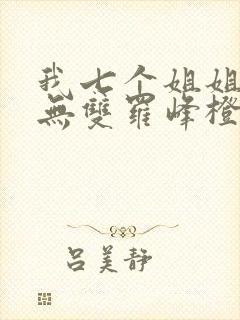 我七个姐姐
無雙羅峰橙
吕美静